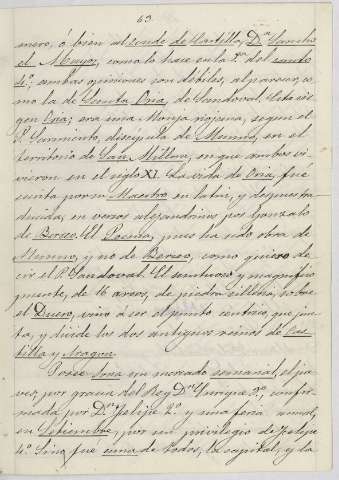 63.
mero, ó bien al Conde de Castilla, Dn Sancho
el Mayor, como lo hace en la 2ª del canto
4º; ambas opiniones son débiles, al parecer, co-
mo la de Santa Oria, de Sandoval. Esta vir-
gen Oria; era una Monja riojana, segun el
P. Sarmiento, discípula de Munno, en el
territorio de San Millan, en que ambos vi-
vieron en el siglo XI. La vida de Oria, fué
escrita por su Maestro en latin, y despues tra-
ducida, en versos alejandrinos por Gonzalo
de Berceo. El pues ha sido obra de
Munno, y no de Berceo, como quiere de-
cir el P. Sandoval. El suntuoso y magnífico
puente, de 16 arcos, de piedra sillería, sobre
el Duero, viene á ser el punto céntrico, que jun-
ta, y divide los dos antiguos reinos de Cas-
tilla y Aragon.
Posee Soria un mercado semanal, el jue-
ves, por gracia del Rey Dn Enrique 2º, confir-
mada por Dn Felipe 2º y una feria anual,
en Setiembre, por un privilegio de Felipe
4º. Sino fue una de todos, la capital, y la